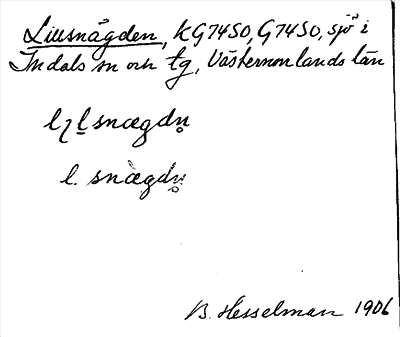 Liusnågden, KG74SO, G74SO, sjö i
Indals sn och tg, Västernorrlands län
l. snægdn̥
B. Hesselman 1906